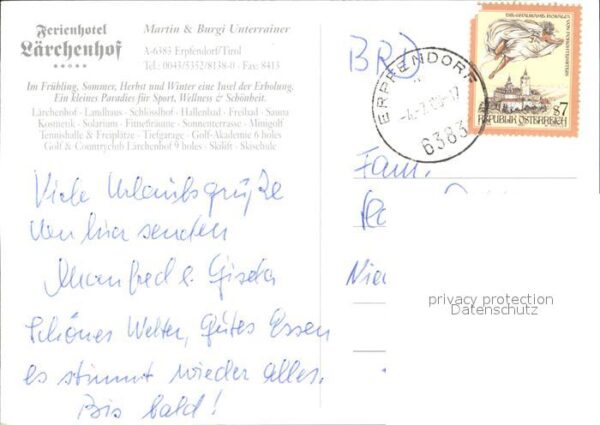 Ferienhotel
Lärchenhof
Martin & Burgi Unterrainer
A-6383 Erpfendorf/Tirol
Tel.: 0043/5352/8138-0 · Fax: 8413
Im Frühling, Sommer, Herbst und Winter eine Insel der Erholung.
Ein kleines Paradies für Sport, Wellness & Schönheit.
Lärchenhof - Landhaus - Schlösslhof - Hallenbad - Freibad - Sauna
Kosmetik - Solarium - Fitneßräume - Sonnenterrasse - Minigolf
Tennishalle & Freiplätze - Tiefgarage - Golf-Akademie 6 holes
Golf & Countryclub Lärchenhof 9 holes - Skilift - Skischule
Viele Urlaubsgrüße
von hier senden
Manfred & Gisela
Schönes Wetter, gutes Essen
es stimmt wieder alles.
Bis bald!
BRD
ERPFENDORF
6383
S7
REPUBLIK ÖSTERREICH
Fam.
privacy protection
Datenschutz